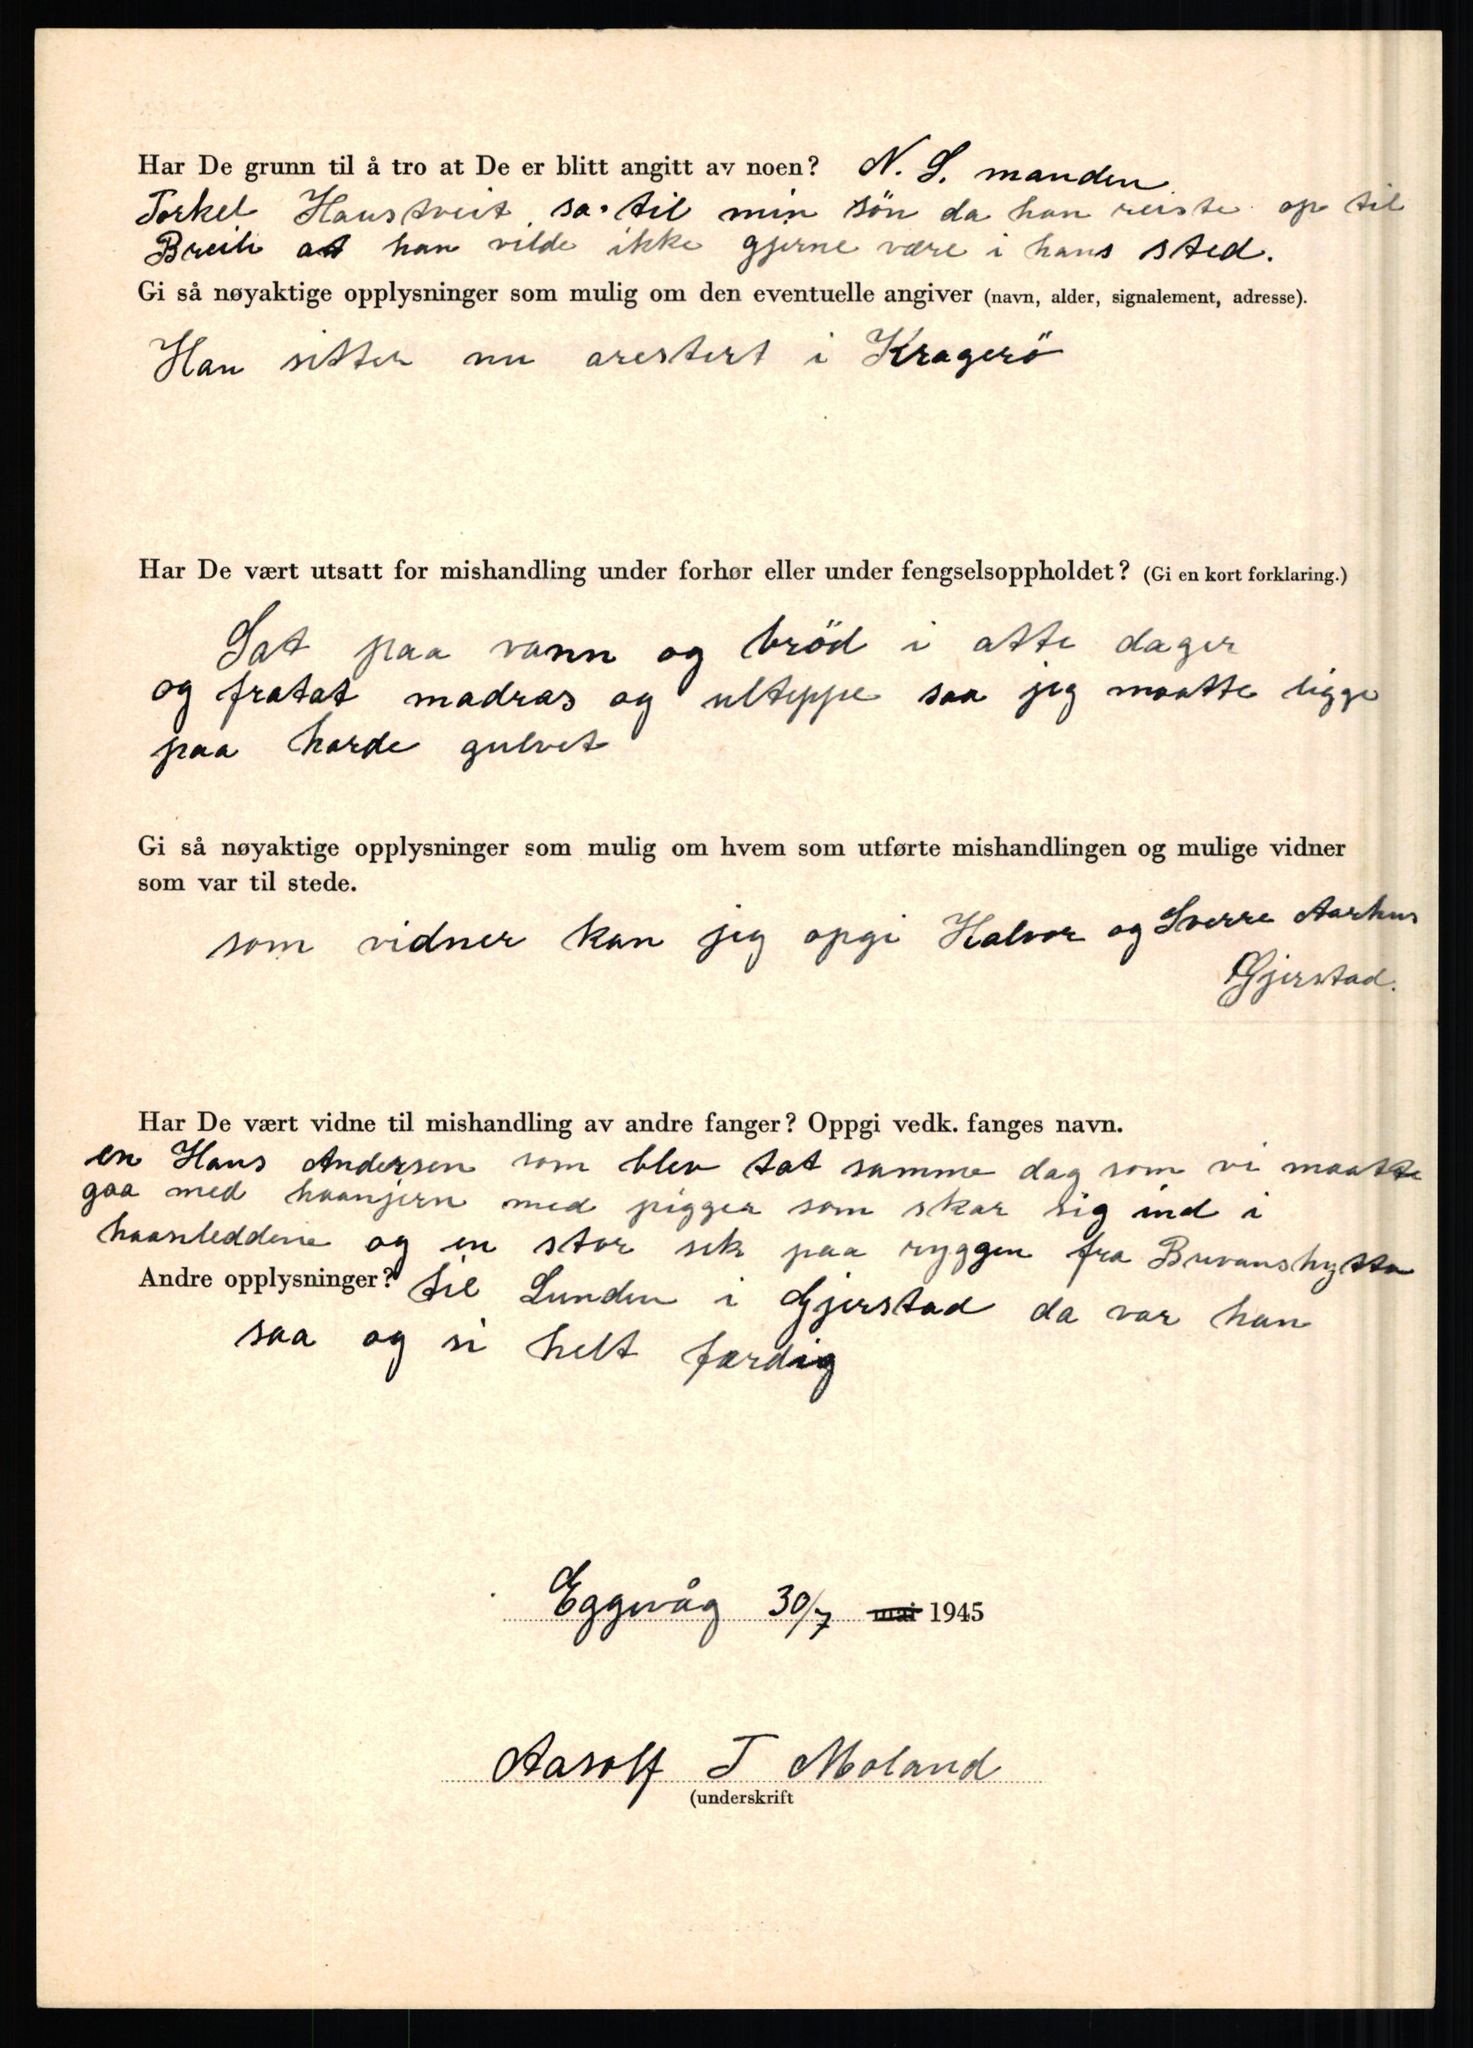 Har De grunn til å tro at De er blitt angitt av noen? N. S. manden
Torkel Haustveit sa til min søn da han reiste op til
Breili at han vilde ikke gjerne være i hans sted.
Gi så nøyaktige opplysninger som mulig om den eventuelle angiver (navn, alder, signalement, adresse).
Han sitter nu arestert i Kragerö
Har De vært utsatt for mishandling under forhør eller under fengselsoppholdet? (Gi en kort forklaring.)
Sat paa vann og bröd i otte dager
og fratat madras og ulteppe saa jeg maatte ligge
paa harde gulvet
Gi så nøyaktige opplysninger som mulig om hvem som utførte mishandlingen og mulige vidner
som var til stede.
som vidner kan jeg opgi Halvor og Sverre Aarhus
Gjerstad.
Har De vært vidne til mishandling av andre fanger? Oppgi vedk. fanges navn.
en Hans Andersen som blev tat samme dag som vi maatte
gaa med haanjern med pigger som skar sig ind i
haanleddene og en stor sek paa ryggen fra Buvanshytta
Andre opplysninger? til Lunden i Gjerstad da var han
saa og si helt færdig
Eggevåg 30/7 mai 1945
Aasolf T Moland
(underskrift